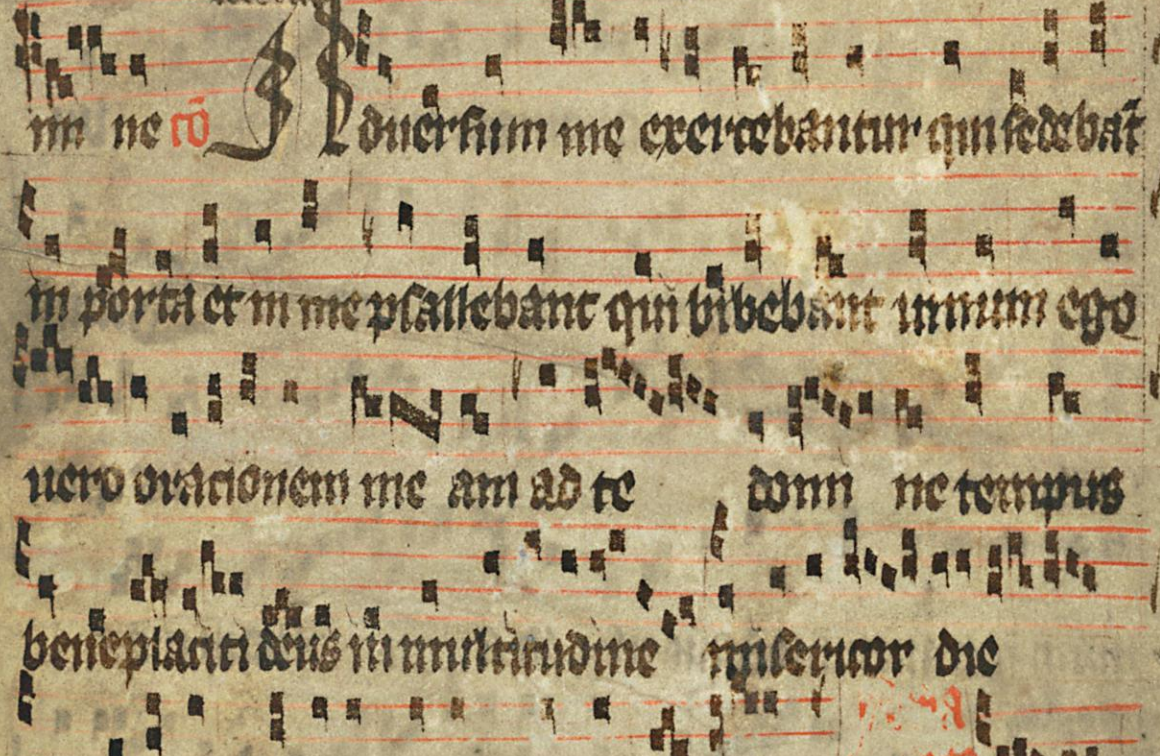 mi ne cō Aduersum me exercebantur qui sedebāt
in porta et in me psallebant qui bibebant uinum ego
uero orationem me am ad te domi ne tempus
beneplaciti deus in multitudine misericor die